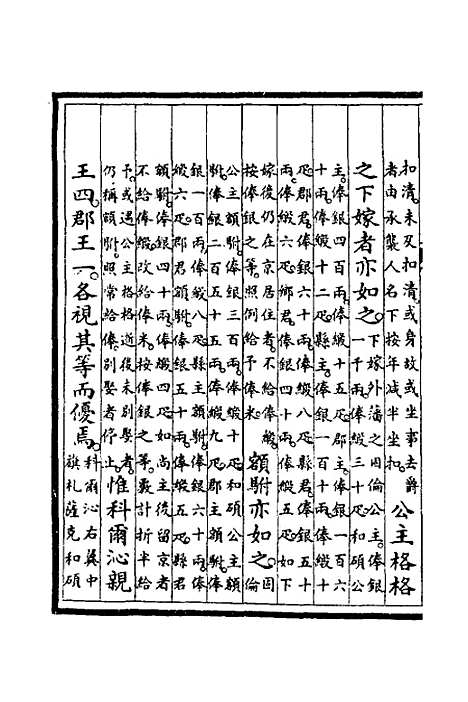 扣清。未及扣清。或身故或坐事去爵
者由承襲人名下按年減半坐扣。
公主格格
之下嫁者亦如之。
下嫁外藩之固倫公主。俸銀
一千兩。俸緞三十疋。和碩公
主。俸銀四百兩。俸緞十五疋。郡主。俸銀一百六
十兩。俸緞十二疋。縣主。俸銀一百十兩。俸緞十
疋。郡君。俸銀六十兩。俸緞八疋。縣君。俸銀五十
兩。俸緞六疋。鄉君。俸銀四十兩。俸緞五疋。如下
嫁後仍在京居住者。不給俸緞。
按俸銀之等。照例給予俸米。
額駙亦如之。
固
倫
公主額駙。俸銀三百兩。俸緞十疋。和碩公主額
駙。俸銀二百五十五兩。俸緞九疋。郡主額駙。俸
銀一百兩。俸緞八疋。縣主額駙。俸銀六十兩。俸
緞六疋。郡君額駙。俸銀五十兩。俸緞五疋。縣君
額駙。俸銀四十兩。俸緞四疋。如尚主後留京者
不給俸緞。改給俸米。按俸銀之等。覈計折半給
予。或遇公主格格逝後未別娶者。
仍稱額駙。照常給俸。別娶者停止。
惟科爾沁親
王四。郡王一。各視其等而優焉。
科爾沁右翼中
旗札薩克和碩